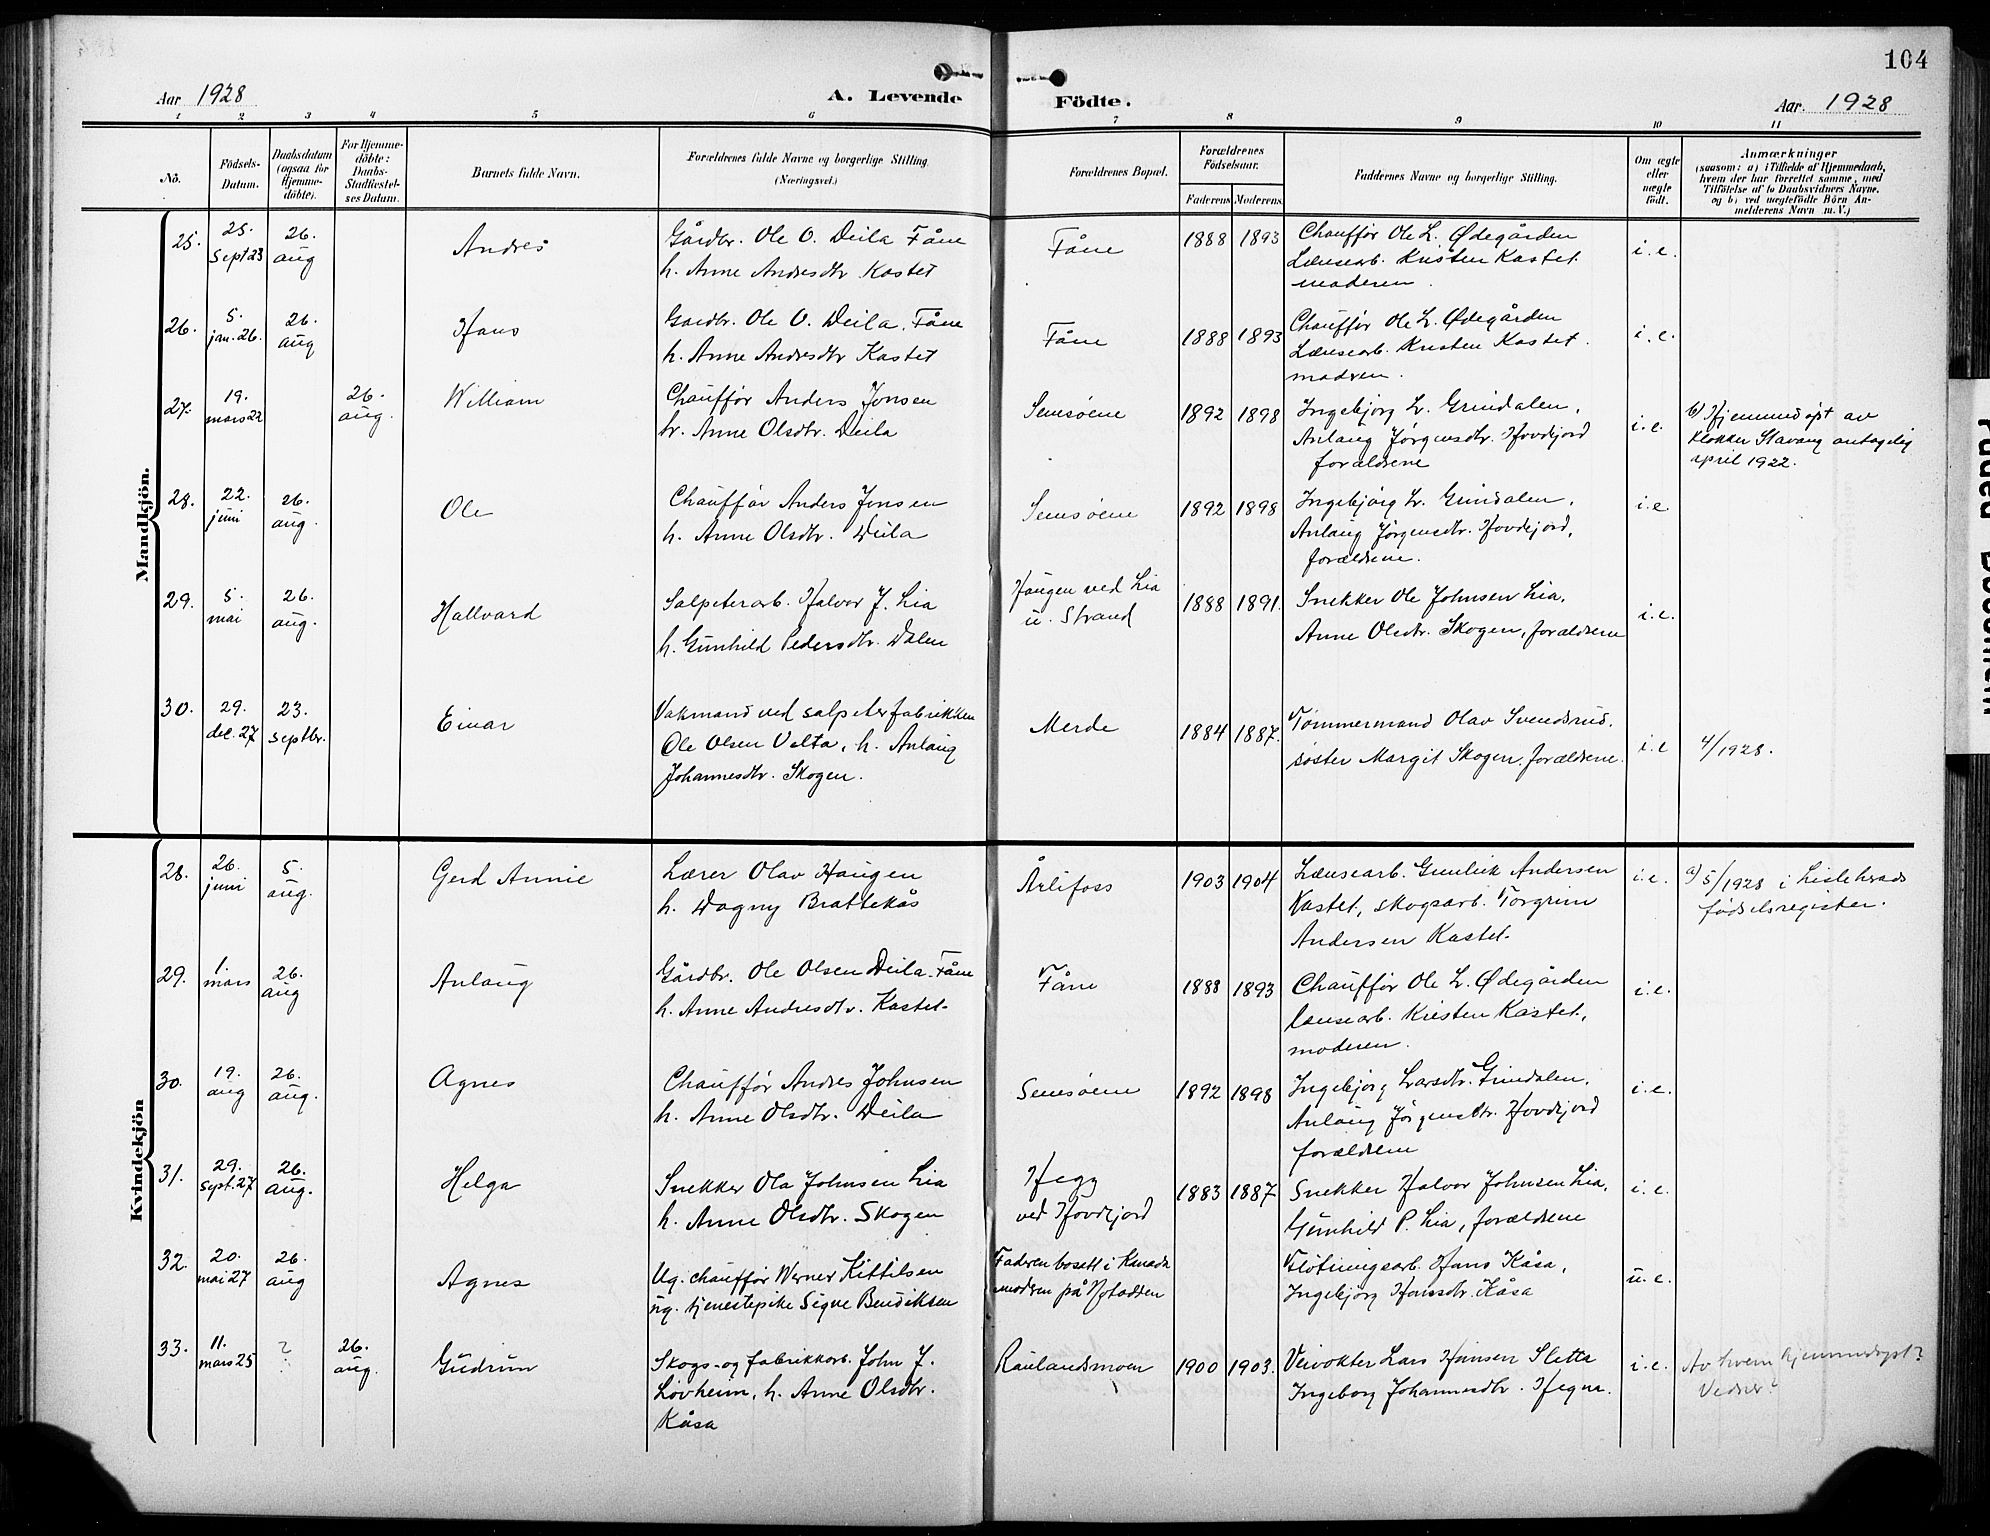 104
Aar 1928
A. Levende
Födte.
Aar. 1928
1 2 3 4 5 6 7 8 9 10 11
No.
Födsels-
Datum.
Daabsdatum
(ogsaa for
Hjemme-
döbte).
For Hjemme-
döbte:
Daabs-
Stadfæstel-
ses Datum.
Barnets fulde Navn.
Forældrenes fulde Navne og borgerlige Stilling
(Næringsvei.)
Forældrenes Bopæl.
Forældrenes
Födselsaar.
Faderens
Moderens
Faddernes Navne og borgerlige Stilling.
Om ægte
eller
uægte
födt.
Anmærkninger
(saasom: a) i Tilfælde af Hjemmedaab,
hvem der har forrettet samme, med
Tilföielse af to Daabsvidners Navne,
og b) ved uægtefödte Börn An-
melderens Navn m. V.)
Mandkjön.
25.
25.
sept 23
26.
aug
Andres
Gårdbr. Ole O. Deila Fåne
h. Anne Andresdtr Kastet
Fåne
1888
1893
Chauffør Ole L. Ødegården
Lænsearb. Kristen Kastet
moderen.
i.e.
26.
5.
jan. 26.
26.
aug
Hans
Gardbr. Ole O. Deila, Fåne
h. Anne Andresdtr Kastet
Fåne
1888
1893
Chauffør Ole L. Ødegården
Lænsearb. Kristen Kastet.
modren.
i.e.
27.
19.
mars 22
26.
aug.
William
Chauffør Anders Jonsen
h. Anne Olsdtr. Deila
Semsøene
1892
1898
Ingebjorg L. Grindalen,
Anlaug Jørgensdtr. Hovdejord
forældrene
i.e.
b) Hjemmedøpt av
klokker Stavang antagelig
april 1922.
28.
22.
juni
26.
aug.
Ole
Chauffør Anders Jonsen
h. Anne Olsdtr. Deila
Semsøene
1892
1898
Ingebjörg L. Grindalen,
Anlaug Jørgensdtr. Hovdejord,
forældrene.
i.e
29.
5.
mai
26.
aug.
Hallvard
Salpeterarb. Halvor J. Lia
h. Gunhild Pedersdtr. Dalen
Haugen ved Lia
u. Strand
1888
1891.
Snekker Ole Johnsen Lia,
Anne Olsdtr. Skogen, forældrene
i.e.
30.
29.
dec. 27
23.
septbr.
Einar
Vakmand ved salpeterfabrikken
Ole Olsen Velta, h. Anlaug
Johannesdtr. Skogen.
Merde
1884
1887.
Tømmermand Olav Svendsrud,
søster Margit Skogen, forældrene.
i.e
4/1928.
Kvindekjön
28.
26.
juni
5.
aug.
Gerd Annie
Lærer Olav Haugen
h. Dagny Brattekås
Årlifoss
1903
1904
Lænsearb. Gunleik Andersen
Kastet, skogsarb. Torgrim
Andersen Kastet.
i.e.
a) 5/1928 i Lisleherads
fødselsregister.
29.
1.
mars
26.
aug
Anlaug
Gårdbr. Ole Olsen Deila. Fåne
h. Anne Andresdtr. Kastet.
Fåne
1888
1893
Chauffør Ole L. Ødegården
lænsearb. Kristen Kastet,
moderen.
i.e.
30.
19.
aug
26.
aug.
Agnes
Chauffør Andres Johnsen
h. Anne Olsdtr. Deila
Semsøene
1892
1898
Ingebjorg Larsdtr. Grindalen.
Anlaug Jørgensdtr. Hovdejord
forældrene
i.e.
31.
29.
sept. 27
26.
aug.
Helga
Snekker Ola Johnsen Lia
h. Anne Olsdtr. Skogen
Hegg
ved Hovdejord
1883
1887
Snekker Halvor Johnsen Lia,
Gunhild P. Lia, forældrene
i.e.
32.
20.
mai 27
26.
aug
Agnes
Ug. chauffør Werner Kittilsen
ug. tjenestepike Signe Bendiksen
Faderen bosatt i Kanada
modren på Notodden
Fløtningsarb. Hans Kåsa,
Ingebjørg Hansdtr. Kåsa
u.e.
33.
11.
mars 25
?
26.
aug.
Gudrun
Skogs- og fabrikkarb. John J.
Lovheim, h. Anne Olsdtr.
Kåsa
Raulandsmoen
1900
1903.
Veivokter Lars Hansen Sletta
Ingeborg Johannesdtr. Hegna.
i.e.
Av hvem hjemmedøpt?
Vedner?